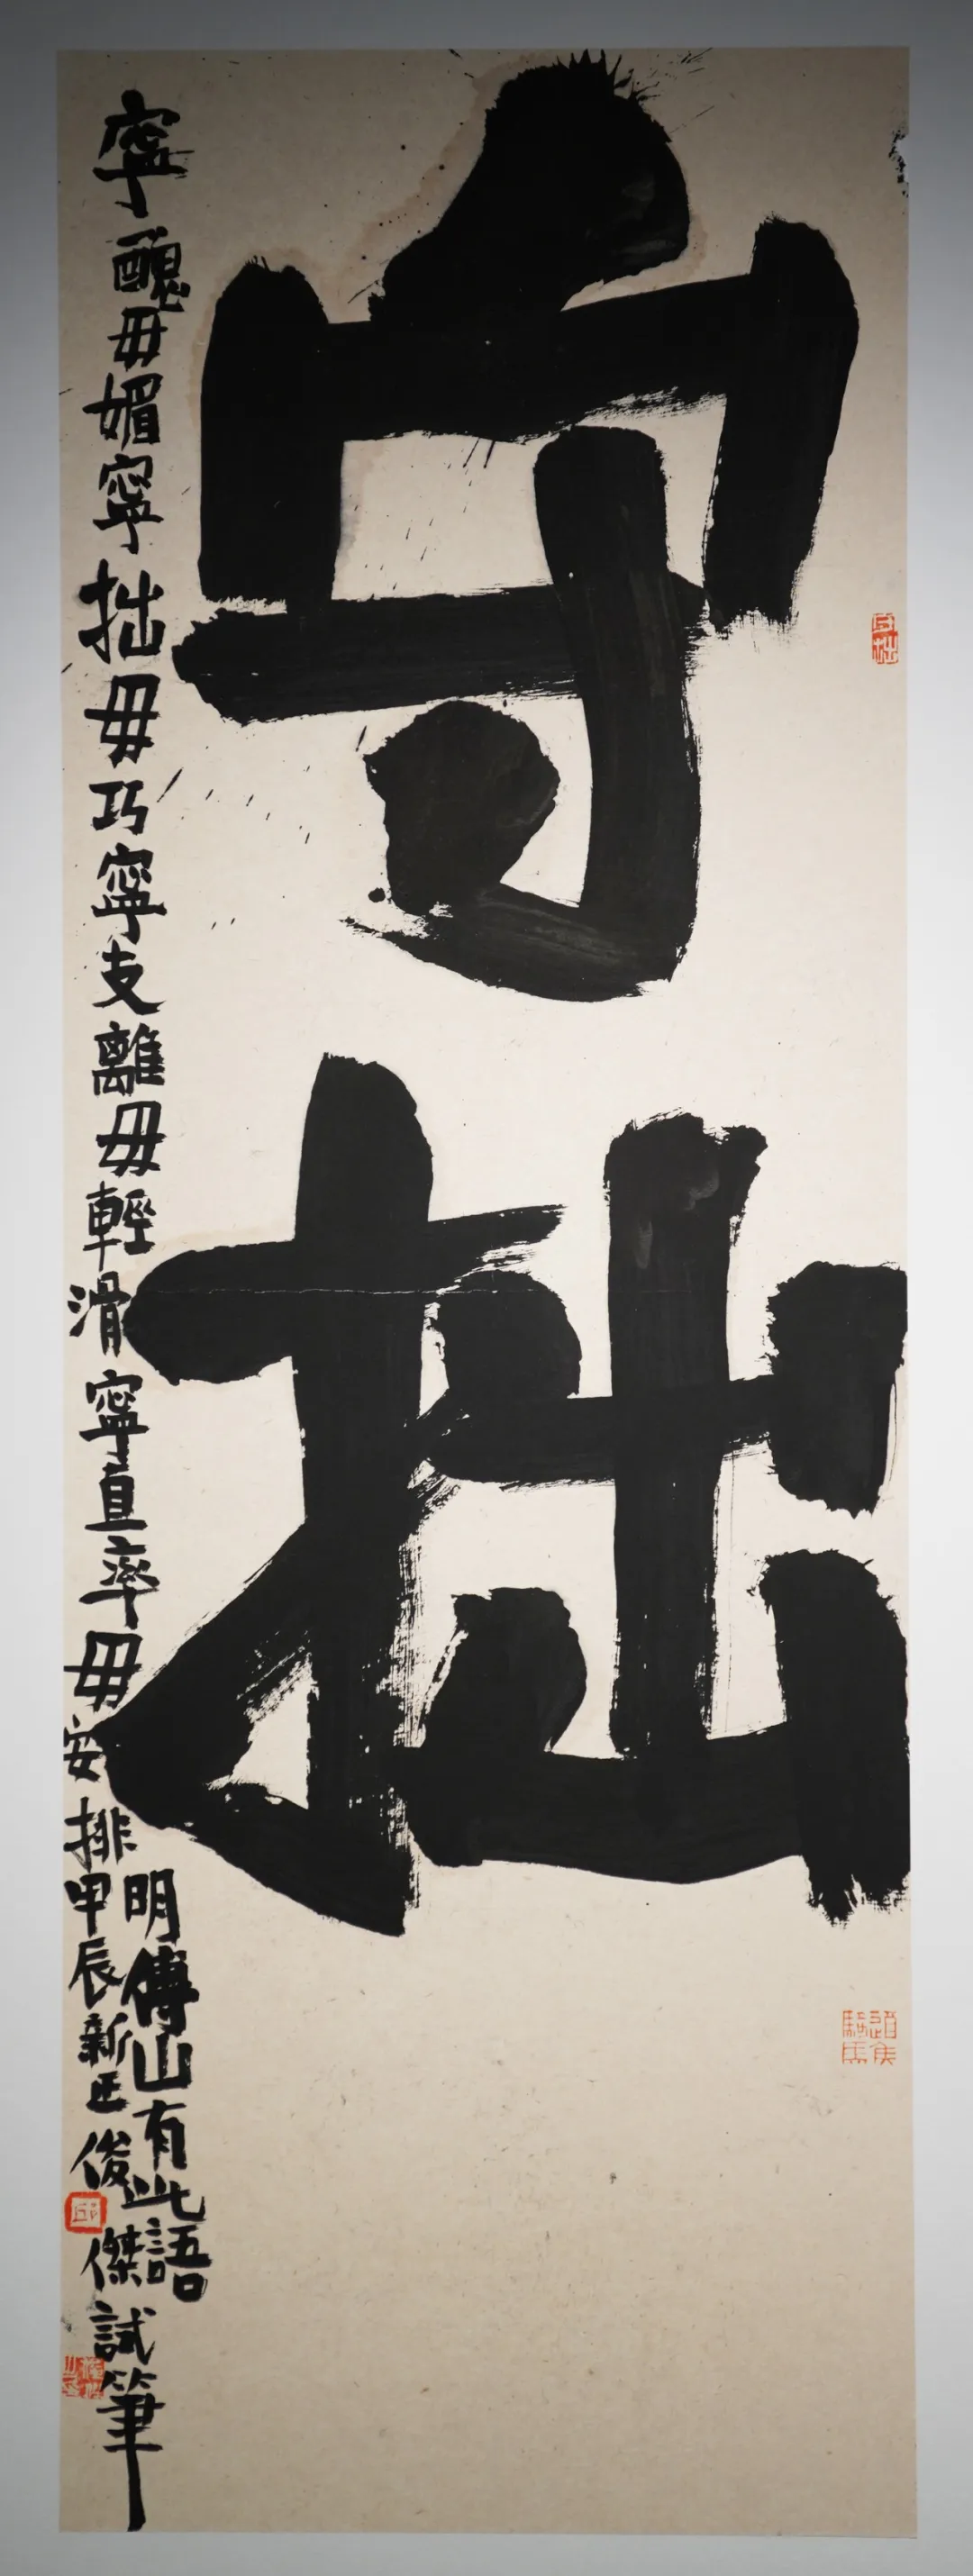 守拙
寧醜毋媚寧拙毋巧寧支離毋輕滑寧直率毋安排
明傅山有此語
甲辰新正俊傑試筆